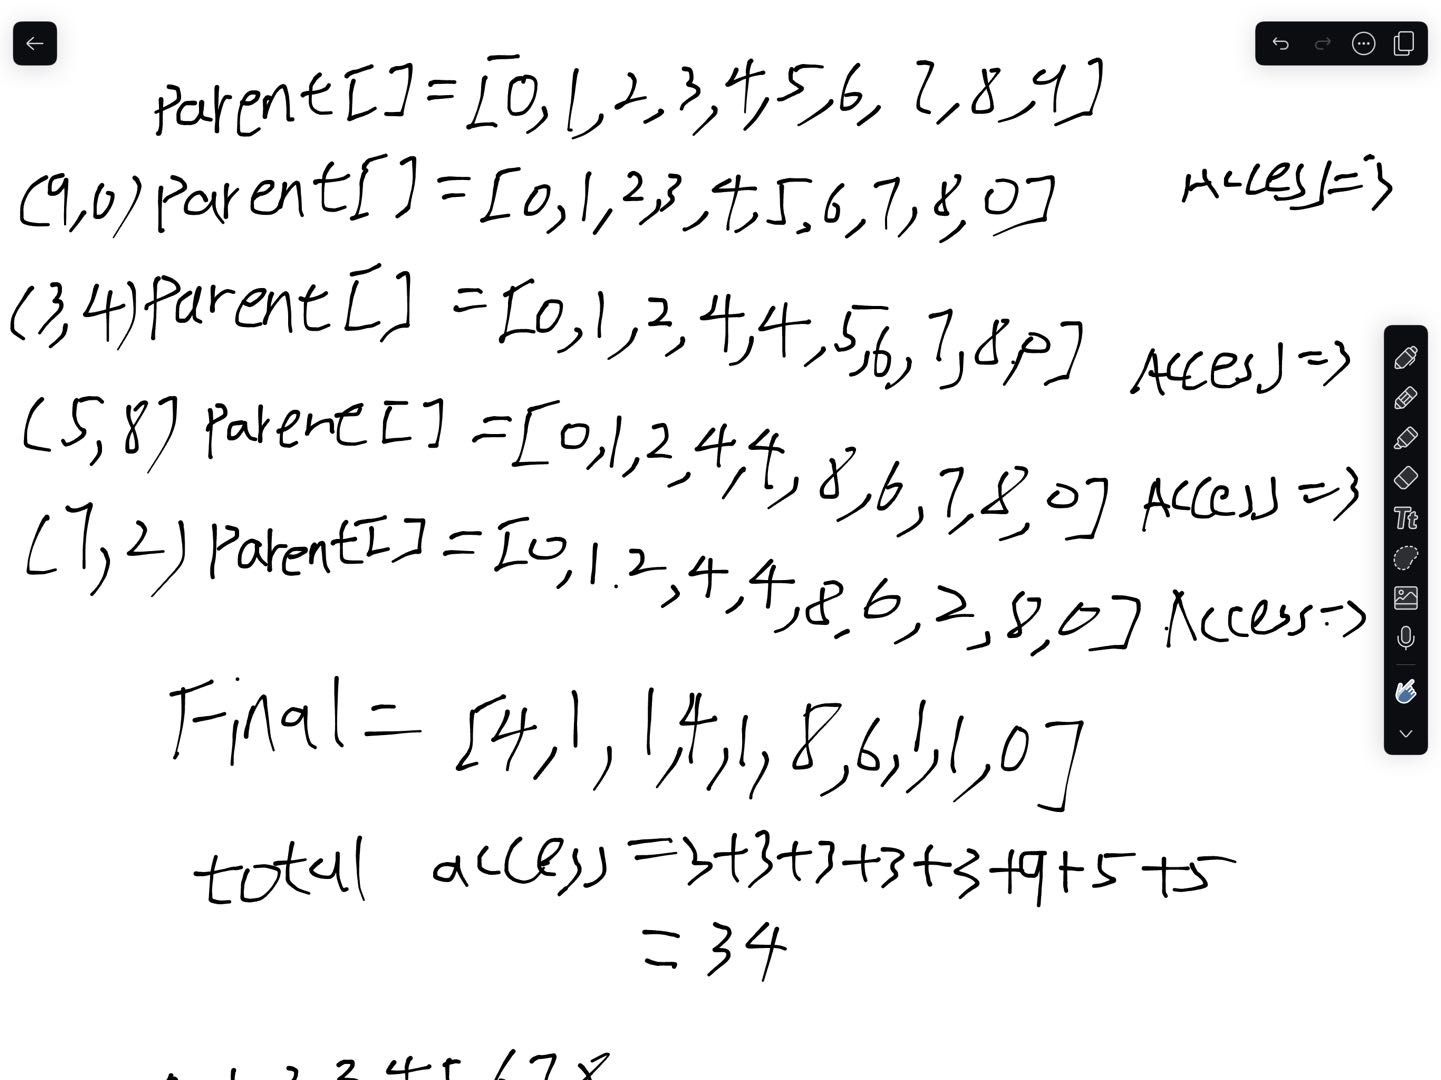 Parent[] = [0, 1, 2, 3, 4, 5, 6, 7, 8, 9]
(9,0) Parent[] = [0, 1, 2, 3, 4, 5, 6, 7, 8, 0] Access=3
(3,4) Parent[] = [0, 1, 2, 4, 4, 5, 6, 7, 8, 0] Access=3
(5,8) Parent[] = [0, 1, 2, 4, 4, 8, 6, 7, 8, 0] Access=3
(7,2) Parent[] = [0, 1, 2, 4, 4, 8, 6, 2, 8, 0] Access=3
Final = [4, 1, 1, 4, 1, 8, 6, 1, 1, 0]
total access = 3+3+3+3+3+9+5+5
= 34
Tt